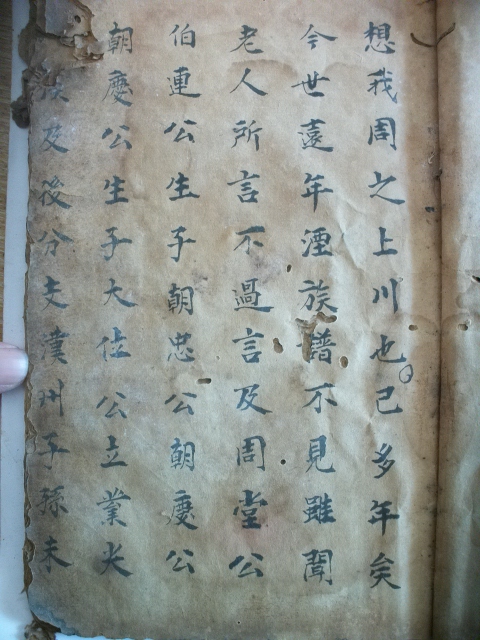 想我周之上川也已多年矣
今世遠年湮族譜不見雖聞
老人所言不過言及周堂公
伯連公生子朝忠公朝慶公
朝慶公生子大位公立業尖
族及後分支漢州子孫未